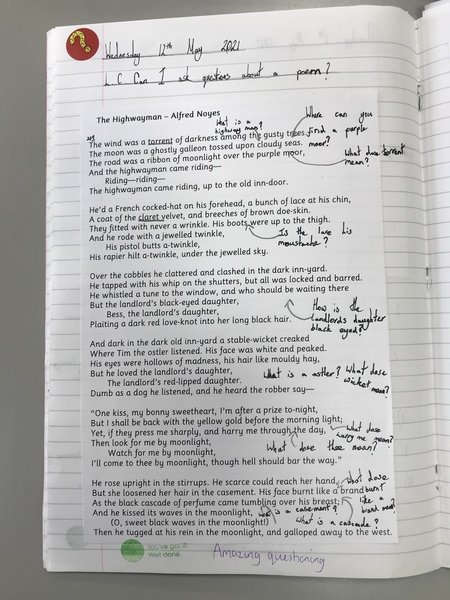 Wednesday 12th May 2021
L.C. Can I ask questions about a poem?
The Highwayman – Alfred Noyes
What is a
highway man?
Where can you
find a purple
moor?
The wind was a torrent of darkness among the gusty trees,
The moon was a ghostly galleon tossed upon cloudy seas.
The road was a ribbon of moonlight over the purple moor,
What dose torrent
mean?
And the highwayman came riding—
Riding—riding—
The highwayman came riding, up to the old inn-door.
He'd a French cocked-hat on his forehead, a bunch of lace at his chin,
A coat of the claret velvet, and breeches of brown doe-skin.
They fitted with never a wrinkle. His boots were up to the thigh.
And he rode with a jewelled twinkle,
Is the lace his
moustache?
His pistol butts a-twinkle,
His rapier hilt a-twinkle, under the jewelled sky.
Over the cobbles he clattered and clashed in the dark inn-yard.
He tapped with his whip on the shutters, but all was locked and barred.
He whistled a tune to the window, and who should be waiting there
But the landlord's black-eyed daughter,
Bess, the landlord's daughter,
Plaiting a dark red love-knot into her long black hair.
How is the
landlords daughter
black eyed?
And dark in the dark old inn-yard a stable-wicket creaked
Where Tim the ostler listened. His face was white and peaked.
His eyes were hollows of madness, his hair like mouldy hay,
But he loved the landlord's daughter,
What is a ostler?
What dose
wicket mean?
The landlord's red-lipped daughter.
Dumb as a dog he listened, and he heard the robber say—
"One kiss, my bonny sweetheart, I'm after a prize to-night,
But I shall be back with the yellow gold before the morning light;
Yet, if they press me sharply, and harry me through the day,
What dose
harry me mean?
Then look for me by moonlight,
What dose thee mean?
Watch for me by moonlight,
I'll come to thee by moonlight, though hell should bar the way."
He rose upright in the stirrups. He scarce could reach her hand,
But she loosened her hair in the casement. His face burnt like a brand
What dose
burnt
like a
brand mean?
As the black cascade of perfume came tumbling over his breast;
And he kissed its waves in the moonlight,
is a casement?
(O, sweet black waves in the moonlight!)
What is a cascade?
Then he tugged at his rein in the moonlight, and galloped away to the west.
You've got it!
Well done.
Amazing questioning